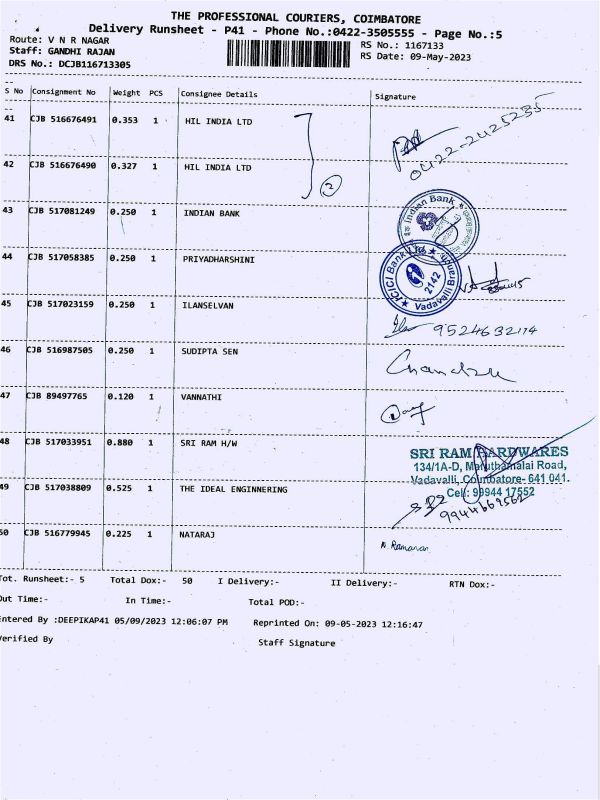 THE PROFESSIONAL COURIERS, COIMBATORE
Delivery Runsheet - P41 - Phone No.:0422-3505555 - Page No.:5
Route: V N R NAGAR
RS No.: 1167133
Staff: GANDHI RAJAN
RS Date: 09-May-2023
DRS No.: DCJB116713305
S No Consignment No Weight PCS Consignee Details Signature
41 CJB 516676491 0.353 1 HIL INDIA LTD
0422-2425235
42 CJB 516676490 0.327 1 HIL INDIA LTD
2
43 CJB 517081249 0.250 1 INDIAN BANK
Indian Bank
44 CJB 517058385 0.250 1 PRIYADHARSHINI
ICICI Bank Ltd
2142
Vadavalli Branch
45 CJB 517023159 0.250 1 ILANSELVAN
9524632174
46 CJB 516987505 0.250 1 SUDIPTA SEN
47 CJB 89497765 0.120 1 VANNATHI
48 CJB 517033951 0.880 1 SRI RAM H/W
SRI RAM HARDWARES
134/1A-D, Maruthamalai Road,
Vadavalli, Coimbatore- 641 041.
Cell: 99944 17552
49 CJB 517038809 0.525 1 THE IDEAL ENGINNERING
50 CJB 516779945 0.225 1 NATARAJ
N. Ramanan
Tot. Runsheet:- 5 Total Dox:- 50 I Delivery:- II Delivery:- RTN Dox:-
Out Time:- In Time:- Total POD:-
Entered By :DEEPIKAP41 05/09/2023 12:06:07 PM Reprinted On: 09-05-2023 12:16:47
Verified By Staff Signature